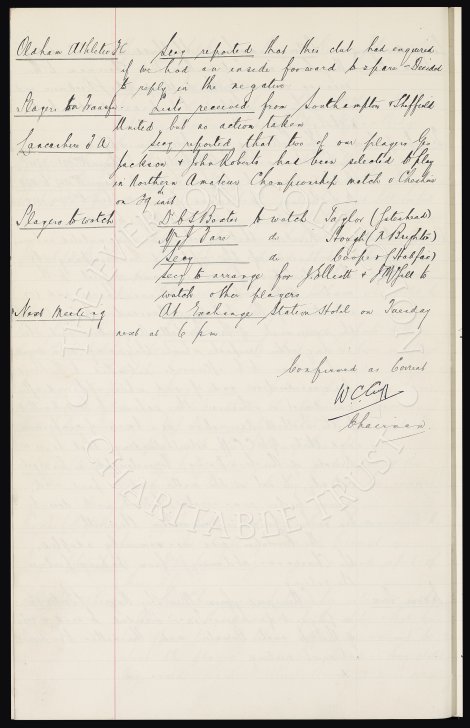 Oldham Athletic FC Secy reported that this club had enquired
if we had an inside forward to spare - Decided
to reply in the negative
Players on Transfer Lists received from Southampton & Sheffield
United but no action taken
Lancashire F A Secy reported that two of our players Geo
Jackson & John Roberts had been selected to play
in Northern Amateur Championship match v Cheshire
on inst
Players to watch Dr C S Baxter to watch Taylor (Gateshead)
Mr J Fare do Hough (N Brighton)
Secy do Cooper (Halifax)
Secy to arrange for J Elliott & J McGill to
watch other players
Next Meeting At Exchange Station Hotel on Tuesday
next at 6 pm
Confirmed as Correct
W.C. Cuff
Chairman
THE EVERTON COLLECTION
CHARITABLE TRUST